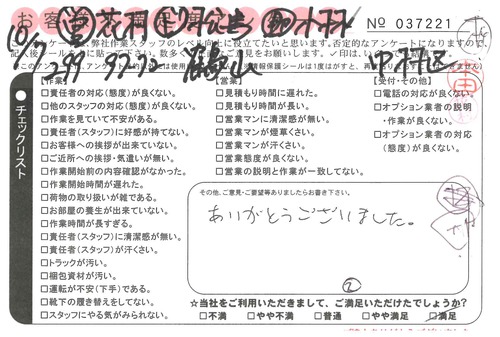 № 037221
チェックリスト
【作業】
□責任者の対応(態度)が良くない。
□他のスタッフの対応(態度)が良くない。
□作業を見ていて不安がある。
□責任者(スタッフ)に好感が持てない。
□お客様への挨拶が出来ていない。
□ご近所への挨拶・気遣いが無い。
□作業開始前の内容確認がなかった。
□作業開始時間が遅れた。
□荷物の取り扱いが雑である。
□お部屋の養生が出来ていない。
□作業時間が長すぎる。
□責任者(スタッフ)に清潔感が無い。
□責任者(スタッフ)が汗くさい。
□トラックが汚い。
□梱包資材が汚い。
□運転が不安(下手)である。
□靴下の履き替えをしてない。
□スタッフにやる気がみられない。
【営業】
□見積もり時間に遅れた。
□見積もり時間が長い。
□営業マンに清潔感が無い。
□営業マンが煙草くさい。
□営業マンが汗くさい。
□営業態度が良くない。
□営業の説明と作業が一致してない。
【受付・その他】
□電話の対応が良くない。
□オプション業者の説明
・作業が良くない。
□オプション業者の対応
(態度)が良くない。
その他、ご意見・ご要望等ありましたらお書き下さい。
ありがとうございました。
②
☆当社をご利用いただきまして、ご満足いただけたでしょうか?
□不満 □やや不満 □普通 □やや満足 □満足